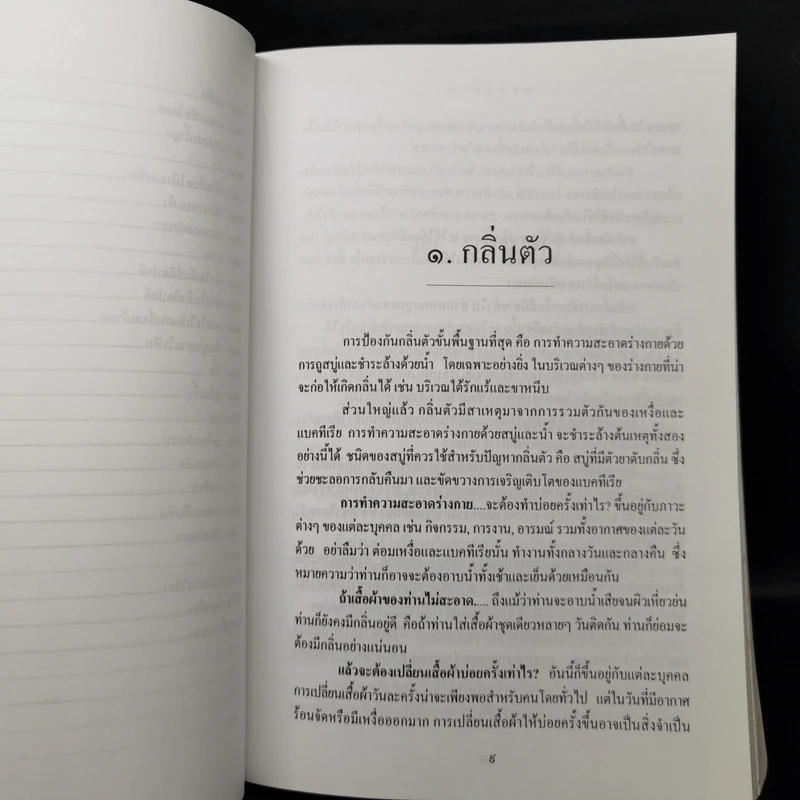 ๑. กลิ่นตัว
การป้องกันกลิ่นตัวขั้นพื้นฐานที่สุด คือ การทำความสะอาดร่างกายด้วย
การถูสบู่และชำระล้างด้วยน้ำ โดยเฉพาะอย่างยิ่ง ในบริเวณต่างๆ ของร่างกายที่น่า
จะก่อให้เกิดกลิ่นได้ เช่น บริเวณใต้รักแร้และขาหนีบ
ส่วนใหญ่แล้ว กลิ่นตัวมีสาเหตุมาจากการรวมตัวกันของเหงื่อและ
แบคทีเรีย การทำความสะอาดร่างกายด้วยสบู่และน้ำ จะชำระล้างต้นเหตุทั้งสอง
อย่างนี้ได้ ชนิดของสบู่ที่ควรใช้สำหรับปัญหากลิ่นตัว คือ สบู่ที่มีตัวยาดับกลิ่น ซึ่ง
ช่วยชะลอการกลับคืนมา และขัดขวางการเจริญเติบโตของแบคทีเรีย
การทำความสะอาดร่างกาย....จะต้องทำบ่อยครั้งเท่าไร? ขึ้นอยู่กับภาวะ
ต่างๆ ของแต่ละบุคคล เช่น กิจกรรม, การงาน, อารมณ์ รวมทั้งอากาศของแต่ละวัน
ด้วย อย่าลืมว่า ต่อมเหงื่อและแบคทีเรียนั้น ทำงานทั้งกลางวันและกลางคืน ซึ่ง
หมายความว่าท่านก็อาจจะต้องอาบน้ำทั้งเช้าและเย็นด้วยเหมือนกัน
ถ้าเสื้อผ้าของท่านไม่สะอาด.... ถึงแม้ว่าท่านจะอาบน้ำเสียจนผิวเหี่ยวย่น
ท่านก็ยังคงมีกลิ่นอยู่ดี คือถ้าท่านใส่เสื้อผ้าชุดเดียวหลายๆ วันติดกัน ท่านก็ย่อมจะ
ต้องมีกลิ่นอย่างแน่นอน
แล้วจะต้องเปลี่ยนเสื้อผ้าบ่อยครั้งเท่าไร? อันนี้ก็ขึ้นอยู่กับแต่ละบุคคล
การเปลี่ยนเสื้อผ้าวันละครั้งน่าจะเพียงพอสำหรับคนโดยทั่วไป แต่ในวันที่มีอากาศ
ร้อนจัดหรือมีเหงื่อออกมาก การเปลี่ยนเสื้อผ้าให้บ่อยครั้งขึ้นอาจเป็นสิ่งจำเป็น
๕